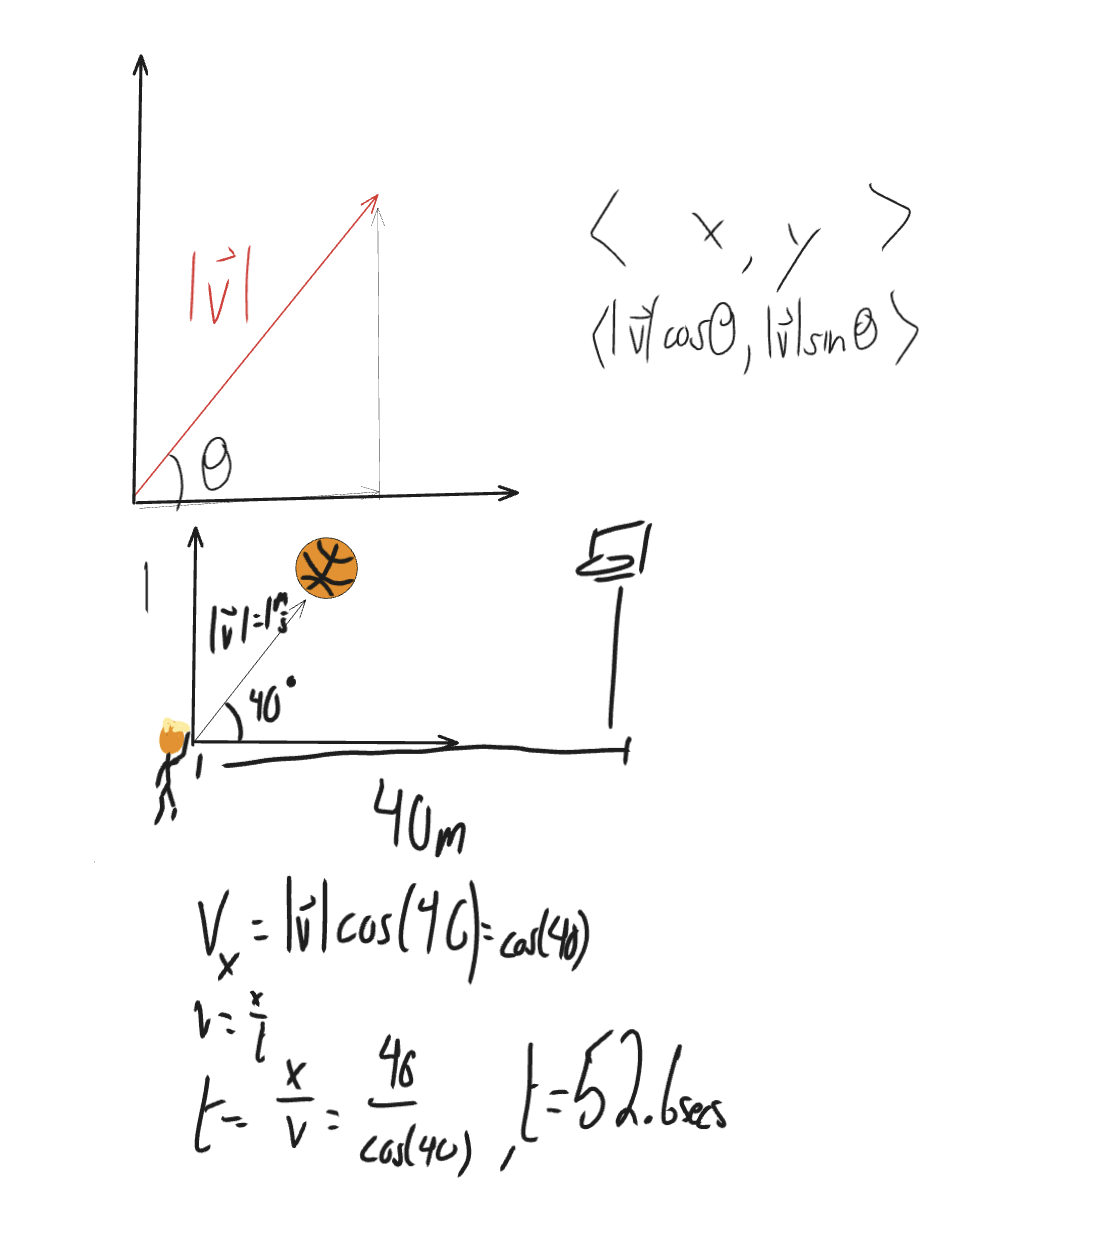 |v⃗|
θ
⟨ x, y ⟩
⟨|v⃗|cosθ, |v⃗|sinθ⟩
|v⃗|=1 m/s
40°
40m
Vₓ = |v⃗|cos(40)=cos(40)
v = x/t
t = x/v = 40/cos(40), t=52.6secs